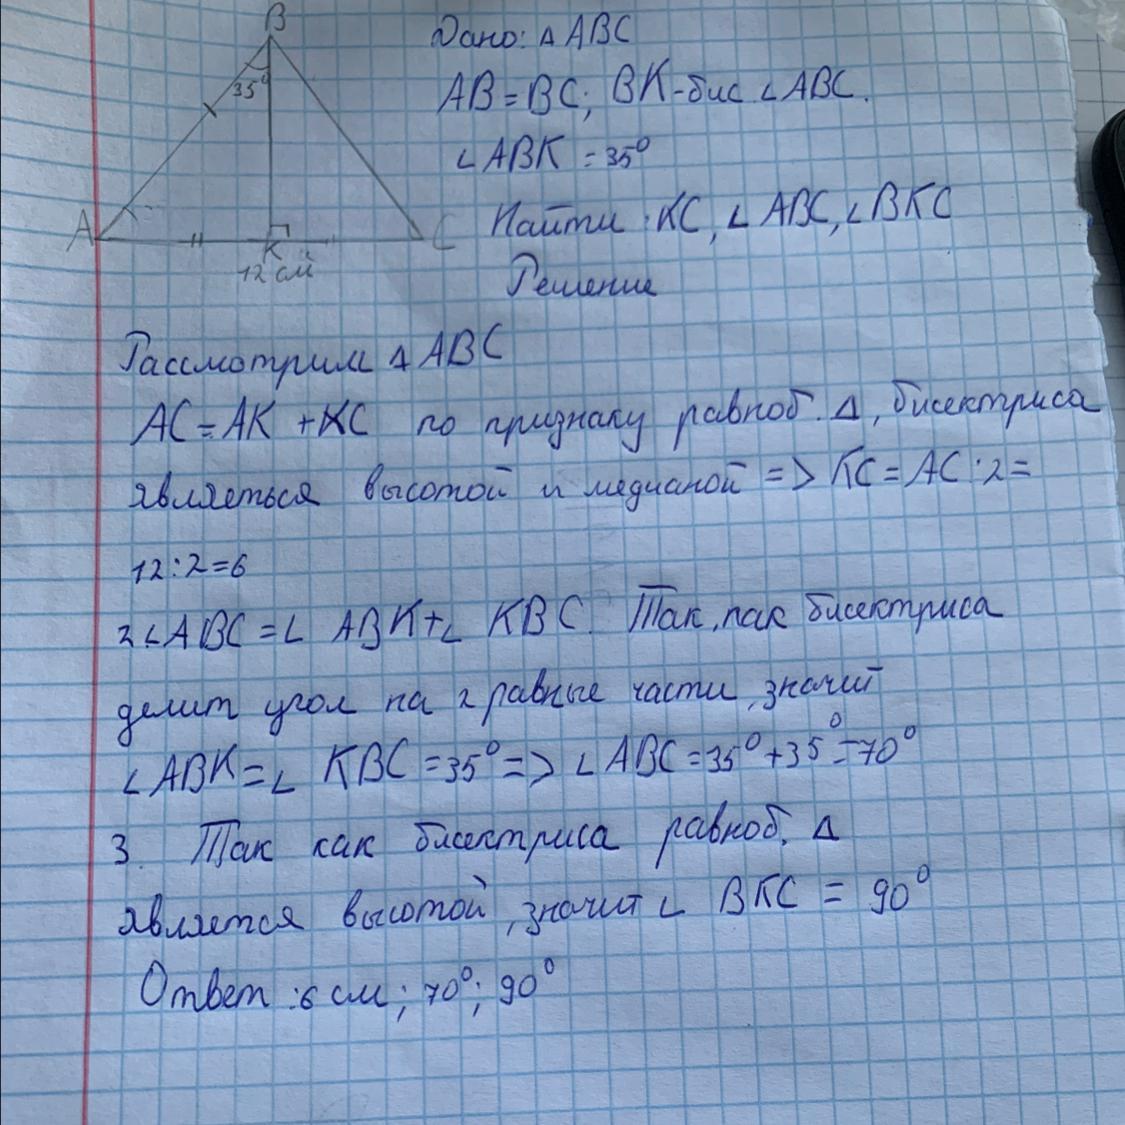 B
Дано: △ ABC
35°
AB = BC; BK - бис ∠ ABC.
∠ ABK = 35°
A
K
C
12 см
Найти : KC, ∠ ABC, ∠ BKC
Решение
Рассмотрим △ ABC
AC = AK + KC по признаку равноб. △, бисектриса
являеться высотой и медианой => KC = AC : 2 =
12 : 2 = 6
2 ∠ ABC = ∠ ABK + ∠ KBC. Так, как бисектриса
делит угол на 2 равные части, значит
∠ ABK = ∠ KBC = 35° => ∠ ABC = 35° + 35° = 70°
3. Так как бисектриса равноб. △
является высотой, значит ∠ BKC = 90°
Ответ : 6 см ; 70° ; 90°